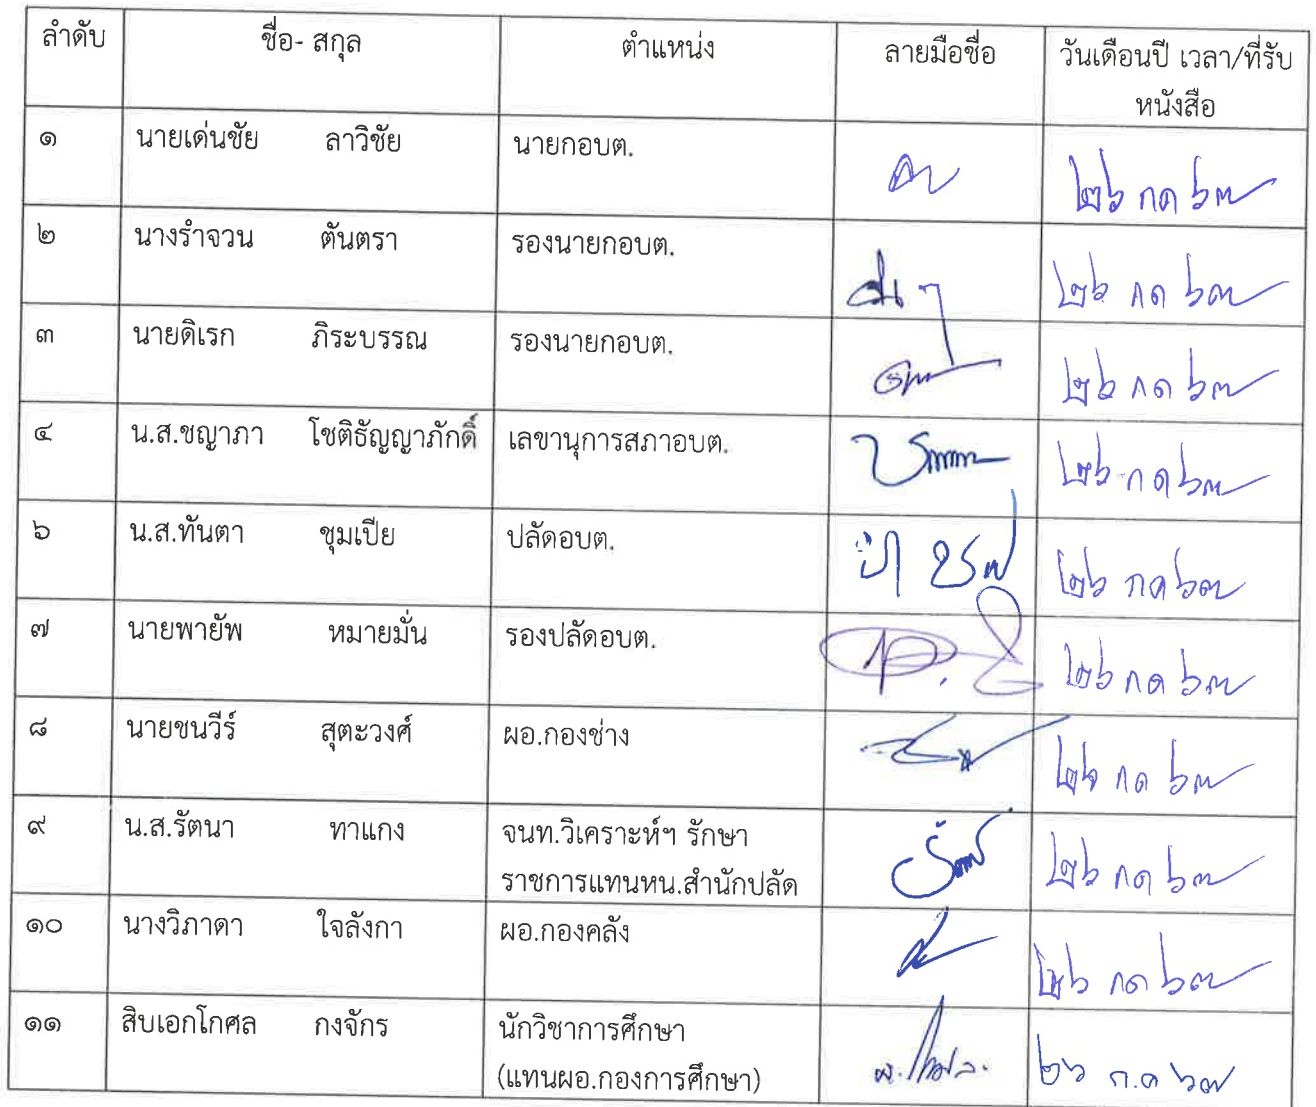 ลำดับ ชื่อ- สกุล ตำแหน่ง ลายมือชื่อ วันเดือนปี เวลา/ที่รับ
หนังสือ
๑ นายเด่นชัย ลาวิชัย นายกอบต. ๒๖ กค ๖๓
๒ นางรำจวน ตันตรา รองนายกอบต. ๒๖ กค ๖๓
๓ นายดิเรก ภิระบรรณ รองนายกอบต. ๒๖ กค ๖๓
๔ น.ส.ชญาภา โชติธัญญาภักดิ์ เลขานุการสภาอบต. ๒๖ กค ๖๓
๖ น.ส.ทันตา ชุมเปีย ปลัดอบต. ๒๖ กค ๖๓
๗ นายพายัพ หมายมั่น รองปลัดอบต. ๒๖ กค ๖๓
๘ นายชนวีร์ สุตะวงศ์ ผอ.กองช่าง ๒๖ กค ๖๓
๙ น.ส.รัตนา ทาแกง จนท.วิเคราะห์ฯ รักษา
ราชการแทนหน.สำนักปลัด ๒๖ กค ๖๓
๑๐ นางวิภาดา ใจลังกา ผอ.กองคลัง ๒๖ กค ๖๓
๑๑ สิบเอกโกศล กงจักร นักวิชาการศึกษา
(แทนผอ.กองการศึกษา) ๒๖ ก.ค